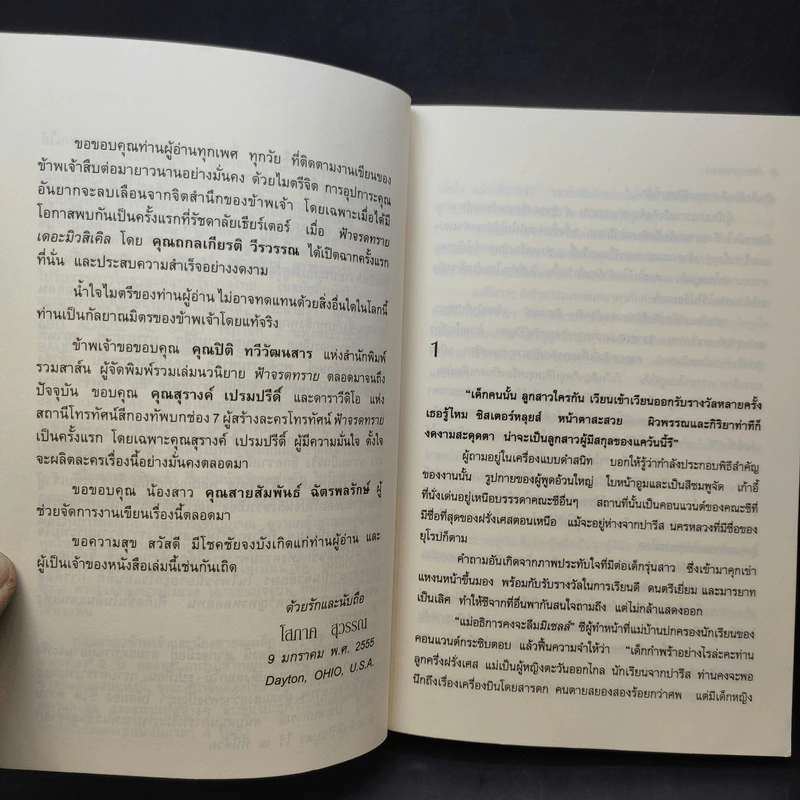 ขอขอบคุณท่านผู้อ่านทุกเพศ ทุกวัย ที่ติดตามงานเขียนของ
ข้าพเจ้าสืบต่อมายาวนานอย่างมั่นคง ด้วยไมตรีจิต การอุปการะคุณ
อันยากจะลบเลือนจากจิตสำนึกของข้าพเจ้า โดยเฉพาะเมื่อได้มี
โอกาสพบกันเป็นครั้งแรกที่รัชดาลัยเธียร์เตอร์ เมื่อ ฟ้าจรดทราย
เดอะมิวสิเคิล โดย คุณถกลเกียรติ วีรวรรณ ได้เปิดฉากครั้งแรก
ที่นั่น และประสบความสำเร็จอย่างงดงาม
น้ำใจไมตรีของท่านผู้อ่าน ไม่อาจทดแทนด้วยสิ่งอื่นใดในโลกนี้
ท่านเป็นกัลยาณมิตรของข้าพเจ้าโดยแท้จริง
ข้าพเจ้าขอขอบคุณ คุณปิติ ทวีวัฒนสาร แห่งสำนักพิมพ์
รวมสาส์น ผู้จัดพิมพ์รวมเล่มนวนิยาย ฟ้าจรดทราย ตลอดมาจนถึง
ปัจจุบัน ขอบคุณ คุณสุรางค์ เปรมปรีดิ์ และดาราวีดิโอ แห่ง
สถานีโทรทัศน์สีกองทัพบกช่อง 7 ผู้สร้างละครโทรทัศน์ ฟ้าจรดทราย
เป็นครั้งแรก โดยเฉพาะคุณสุรางค์ เปรมปรีดิ์ ผู้มีความมั่นใจ ตั้งใจ
จะผลิตละครเรื่องนี้อย่างมั่นคงตลอดมา
ขอขอบคุณ น้องสาว คุณสายสัมพันธ์ ฉัตรพลรักษ์ ผู้
ช่วยจัดการงานเขียนเรื่องนี้ตลอดมา
ขอความสุข สวัสดี มีโชคชัยจงบังเกิดแก่ท่านผู้อ่าน และ
ผู้เป็นเจ้าของหนังสือเล่มนี้เช่นกันเถิด
ด้วยรักและนับถือ
โสภาค สุวรรณ
9 มกราคม พ.ศ. 2555
Dayton, OHIO, U.S.A.
1
“เด็กคนนั้น ลูกสาวใครกัน เวียนเข้าเวียนออกรับรางวัลหลายครั้ง
เธอรู้ไหม ซิสเตอร์หลุยส์ หน้าตาสะสวย ผิวพรรณและกิริยาท่าทีก็
งดงามสะดุดตา น่าจะเป็นลูกสาวผู้มีสกุลของแคว้นนี้รึ”
ผู้ถามอยู่ในเครื่องแบบดำสนิท บอกให้รู้ว่ากำลังประกอบพิธีสำคัญ
ของงานนั้น รูปกายของผู้พูดอ้วนใหญ่ ใบหน้าอูมและเป็นสีชมพูจัด เก้าอี้
ที่นั่งเด่นอยู่เหนือบรรดาคณะชีอื่นๆ สถานที่นั้นเป็นคอนแวนต์ของคณะชีที่
มีชื่อที่สุดของฝรั่งเศสตอนเหนือ แม้จะอยู่ห่างจากปารีส นครหลวงที่มีชื่อของ
ยุโรปก็ตาม
คำถามอันเกิดจากภาพประทับใจที่มีต่อเด็กรุ่นสาว ซึ่งเข้ามาคุกเข่า
แหงนหน้าขึ้นมอง พร้อมกับรับรางวัลในการเรียนดี ดนตรีเยี่ยม และมารยาท
เป็นเลิศ ทำให้ชีจากที่อื่นพากันสนใจถามถึง แต่ไม่กล้าแสดงออก
“แม่อธิการคงจะลืมมิเชลล์” ชีผู้ทำหน้าที่แม่บ้านปกครองนักเรียนของ
คอนแวนต์กระซิบตอบ แล้วฟื้นความจำให้ว่า “เด็กกำพร้าอย่างไรล่ะคะท่าน
ลูกครึ่งฝรั่งเศส แม่เป็นผู้หญิงตะวันออกไกล นักเรียนจากปารีส ท่านคงจะพอ
นึกถึงเรื่องเครื่องบินโดยสารตก คนตายสยองสองร้อยกว่าศพ แต่มีเด็กหญิง